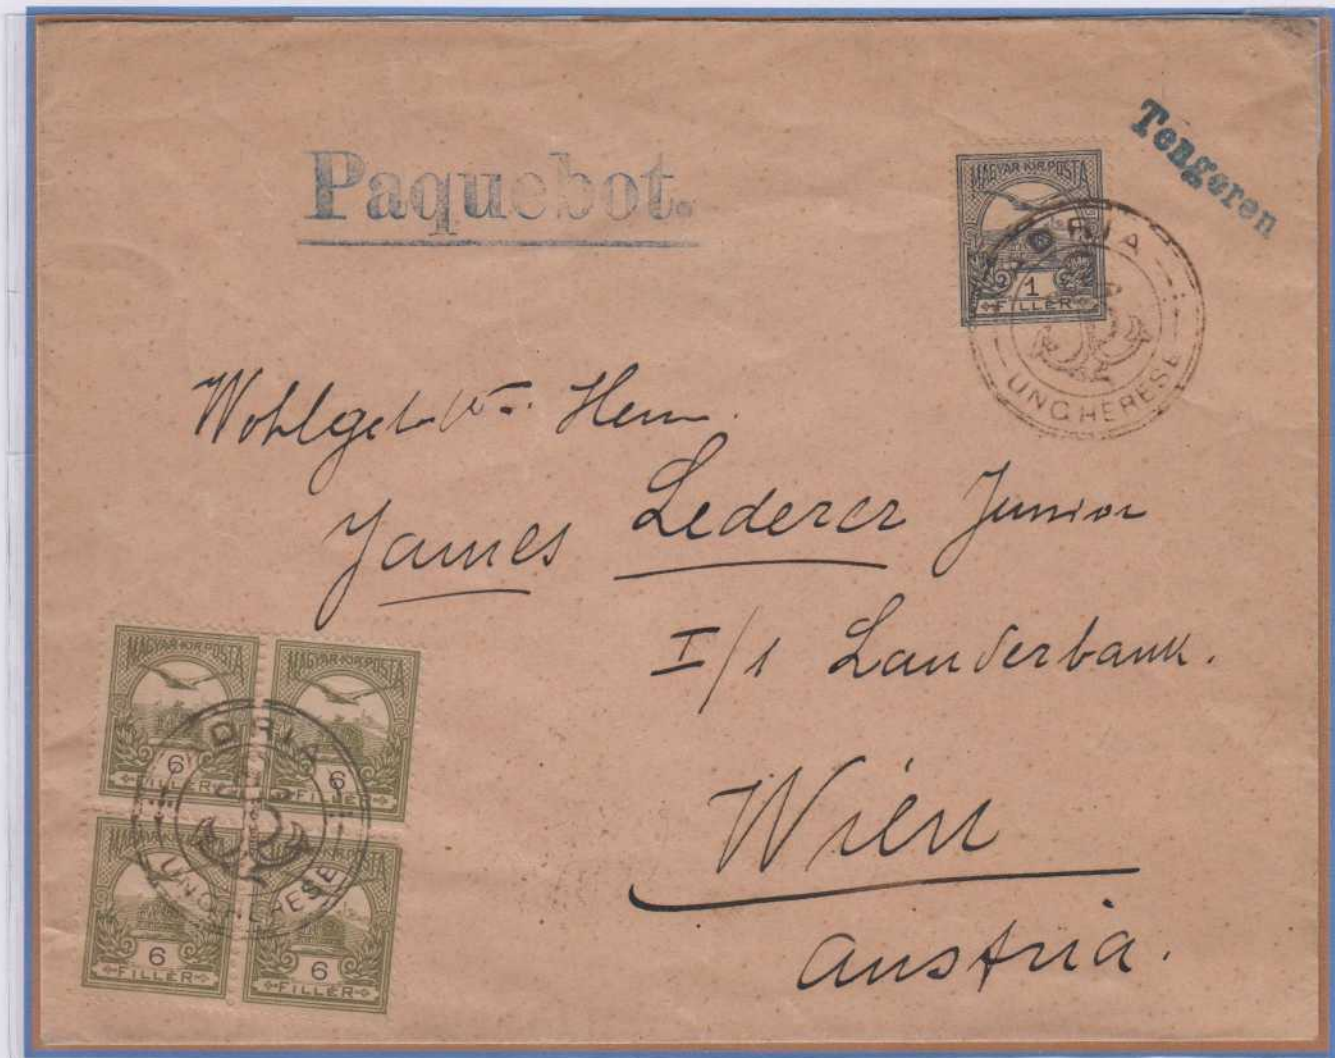 Paquebot.
Tengeren
MAGYAR·KIR·POSTA
1
FILLÉR
ADRIA
UNGHERESE
Herrn
James Lederer Junior
I/1 Landerbank.
Wien
Austria.
MAGYAR·KIR·POSTA
MAGYAR·KIR·POSTA
6
FILLÉR
6
FILLÉR
ADRIA
UNGHERESE
MAGYAR·KIR·POSTA
MAGYAR·KIR·POSTA
6
FILLÉR
6
FILLÉR